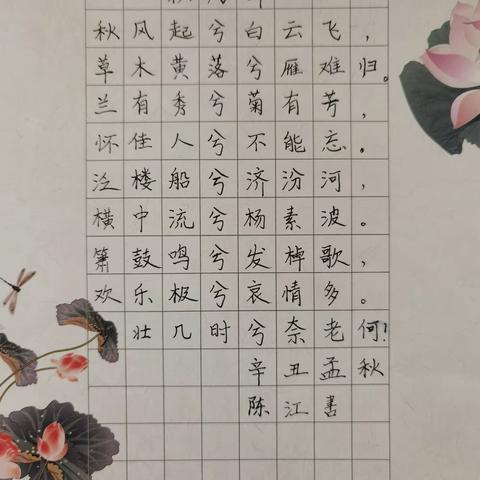 秋风起兮白云飞，
草木黄落兮雁难归。
兰有秀兮菊有芳，
怀佳人兮不能忘。
泛楼船兮济汾河，
横中流兮杨素波。
箫鼓鸣兮发棹歌，
欢乐极兮哀情多。
壮几时兮奈老何！
辛丑孟秋
陈江書